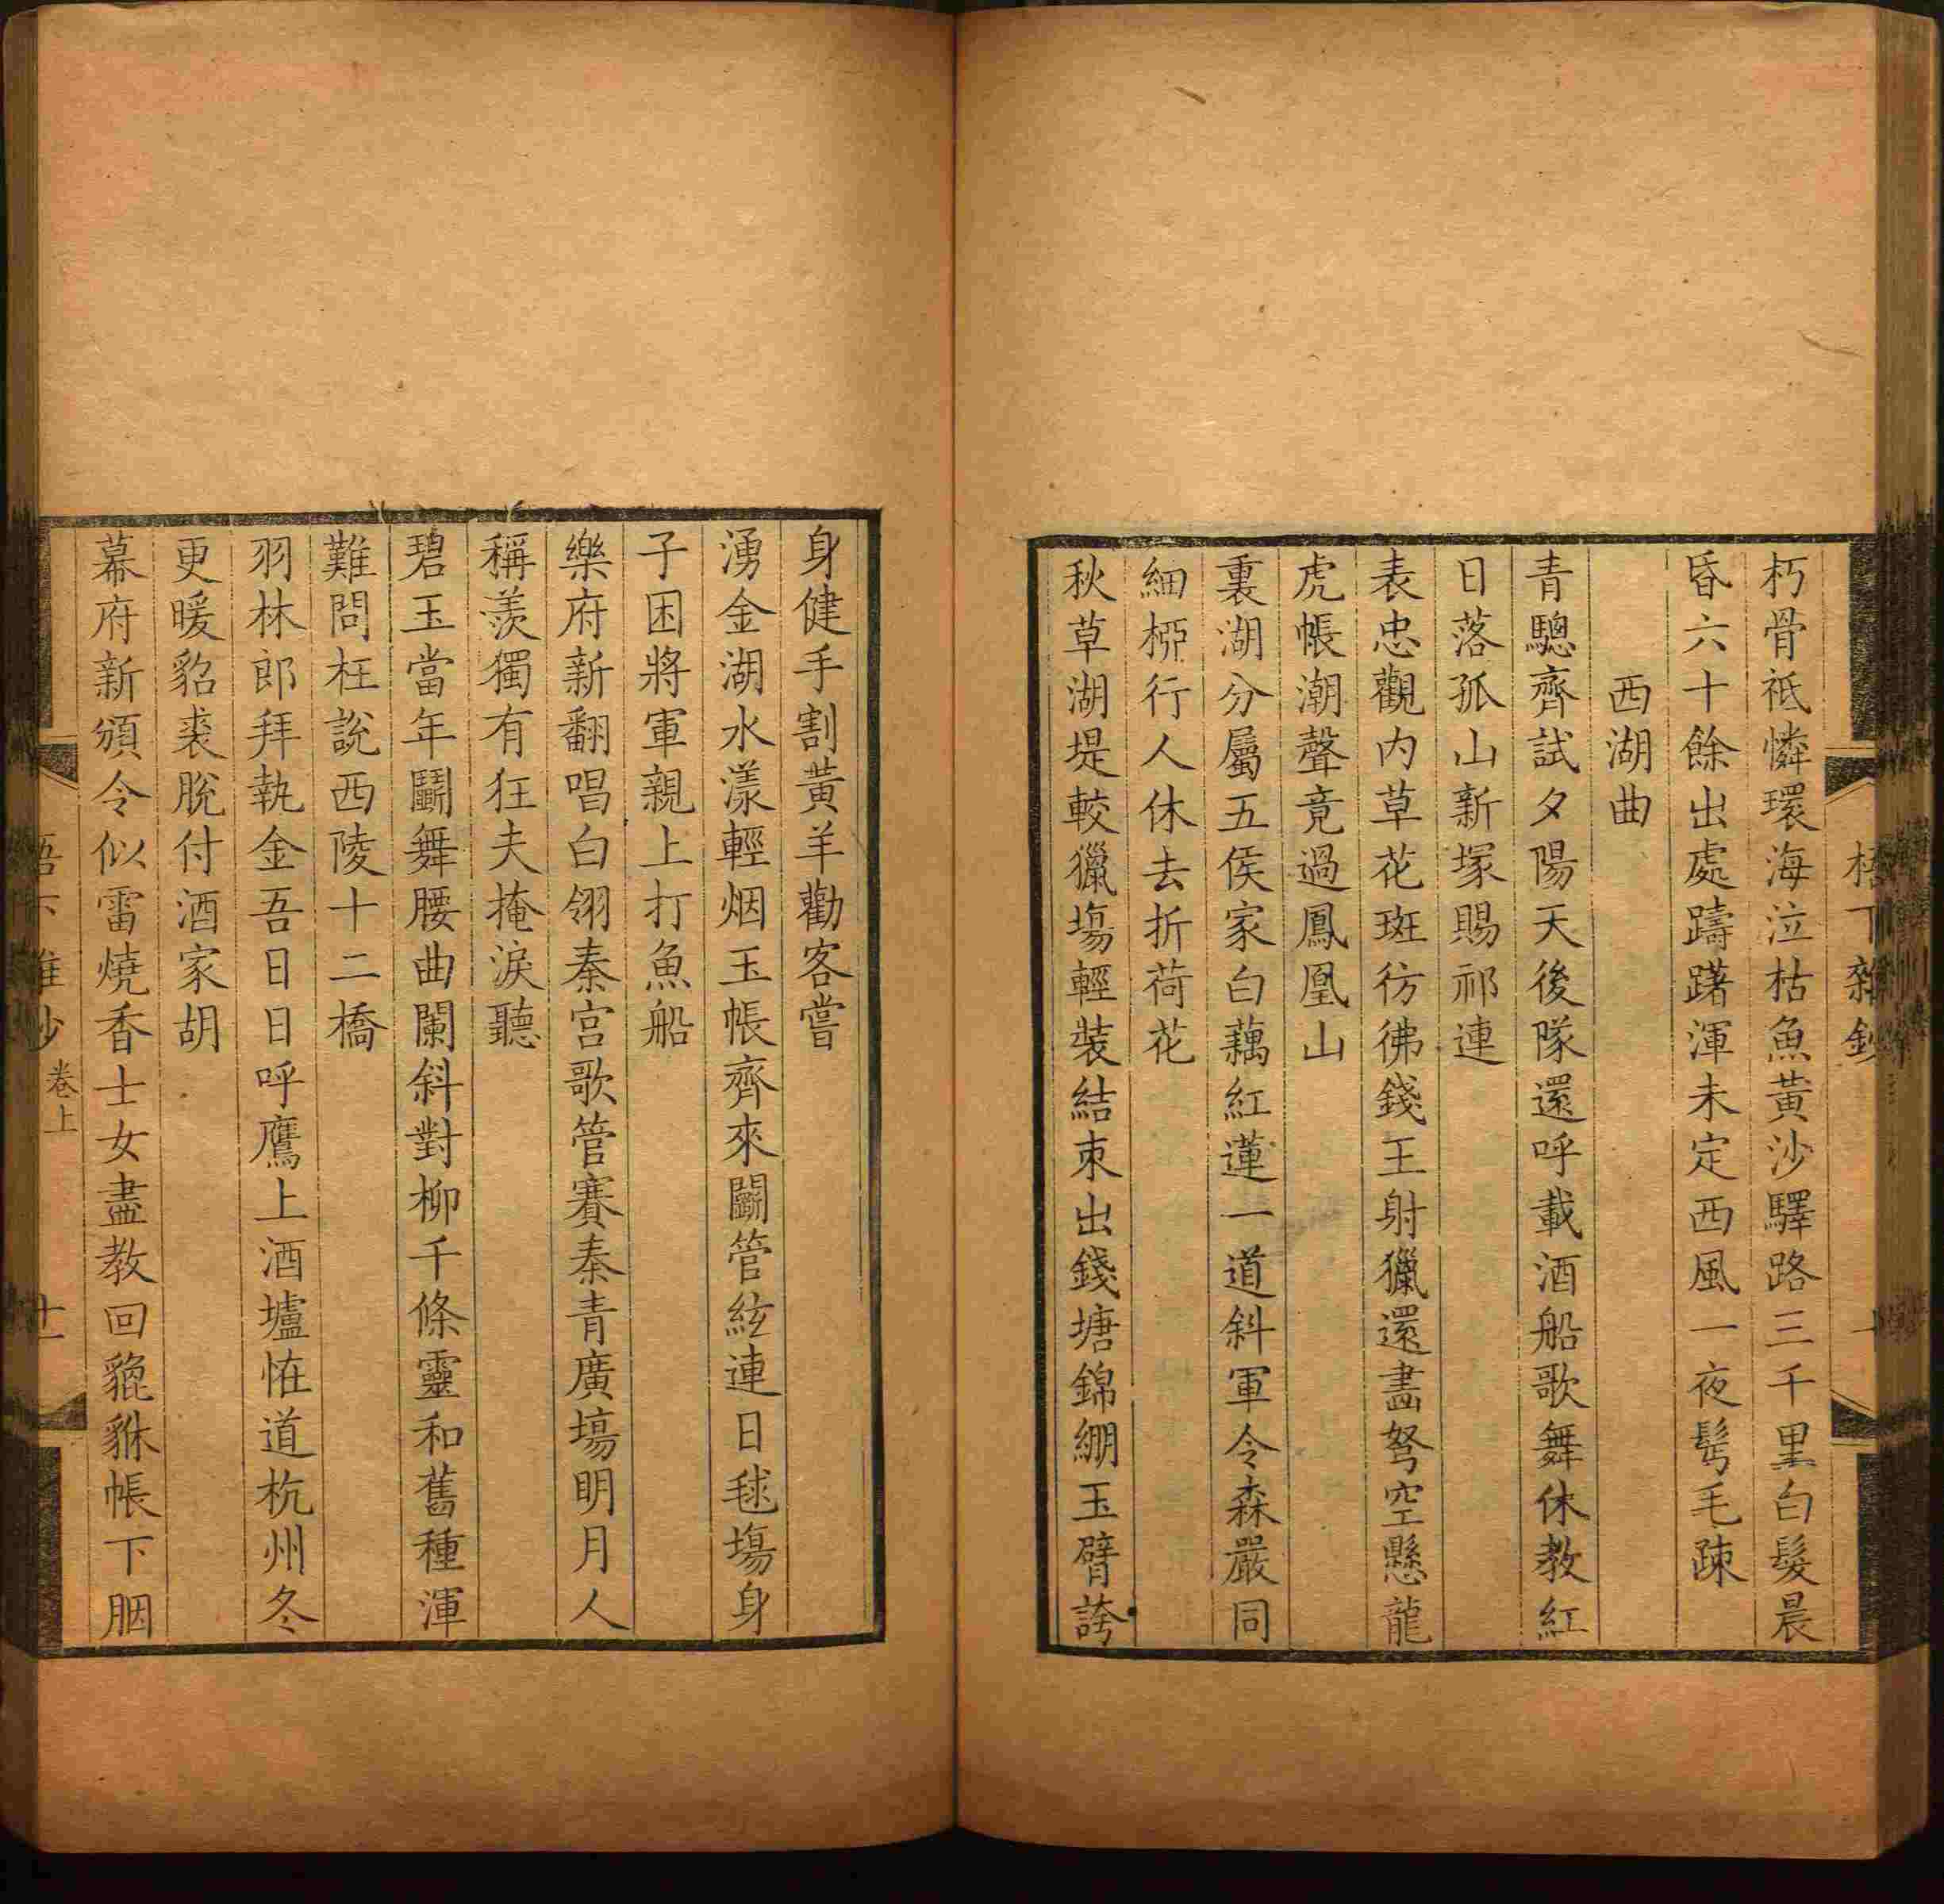 梧下雜鈔
朽骨祗憐環海泣枯魚黃沙驛路三千里白髮晨
昏六十餘出處躊躇渾未定西風一夜鬂毛疎
西湖曲
青驄齊試夕陽天後隊還呼載酒船歌舞休教紅
日落孤山新塚賜祁連
表忠觀内草花斑彷彿錢王射獵還畵弩空懸龍
虎帳潮聲竟過鳳凰山
裏湖分屬五侯家白藕紅蓮一道斜軍令森嚴同
細桺行人休去折荷花
秋草湖堤較獵塲輕裝結束出錢塘錦繃玉臂誇
身健手割黃羊勸客嘗
湧金湖水漾輕烟玉帳齊來鬭管絃連日毬塲身
子困將軍親上打魚船
樂府新翻唱白翎秦宫歌管賽秦青廣塲明月人
稱羨獨有狂夫掩淚聽
碧玉當年鬬舞腰曲闌斜對柳千條靈和舊種渾
難問枉說西陵十二橋
羽林郎拜執金吾日日呼鷹上酒壚怪道杭州冬
更暖貂裘脫付酒家胡
幕府新頒令似雷燒香士女盡教回貔貅帳下胭
卷上
十一